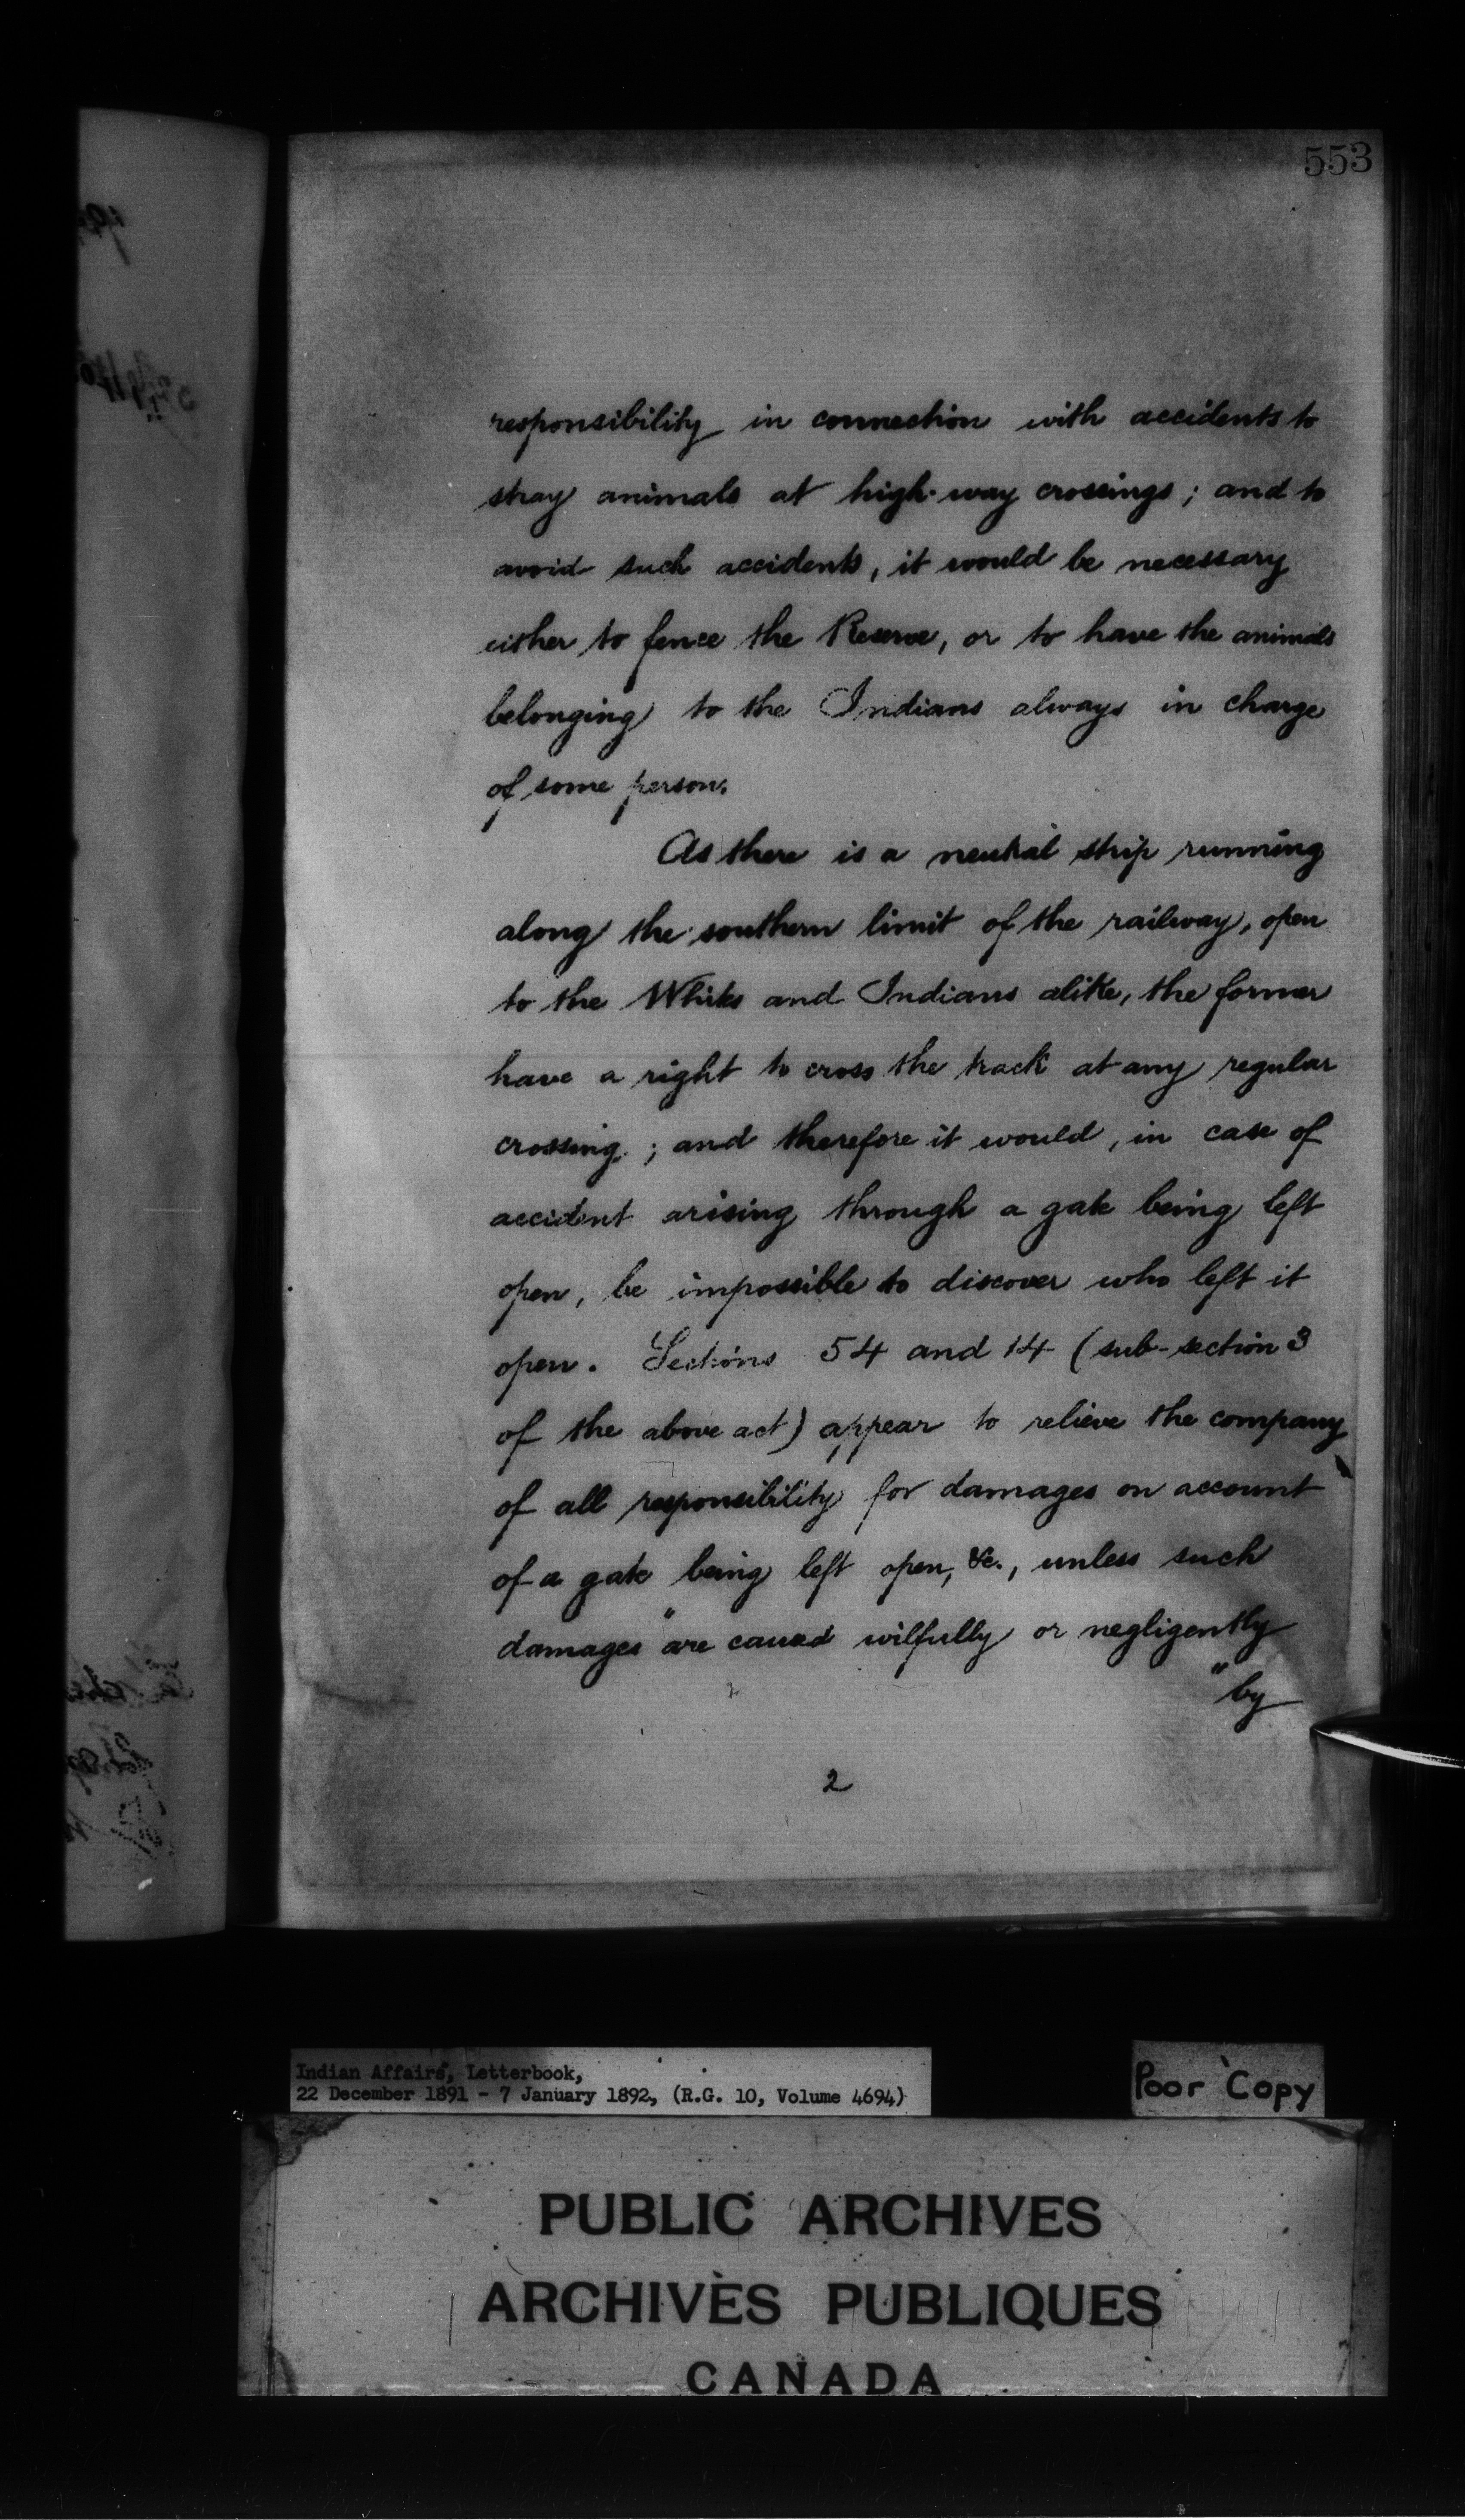 553
responsibility in connection with accidents to
stray animals at high-way crossings; and to
avoid such accidents, it would be necessary
either to fence the Reserve, or to have the animals
belonging to the Indians always in charge
of some person.
As there is a neutral strip running
along the southern limit of the railway, open
to the Whites and Indians alike, the former
have a right to cross the track at any regular
crossing; and therefore it would, in case of
accident arising through a gate being left
open, be impossible to discover who left it
open. Sections 54 and 14 (sub-section 3
of the above act) appear to relieve the company
of all responsibility for damages on account
of a gate being left open, &c., unless such
damages "are caused wilfully or negligently
"by
2
Indian Affairs, Letterbook,
22 December 1891 - 7 January 1892, (R.G. 10, Volume 4694)
Poor Copy
PUBLIC ARCHIVES
ARCHIVES PUBLIQUES
CANADA